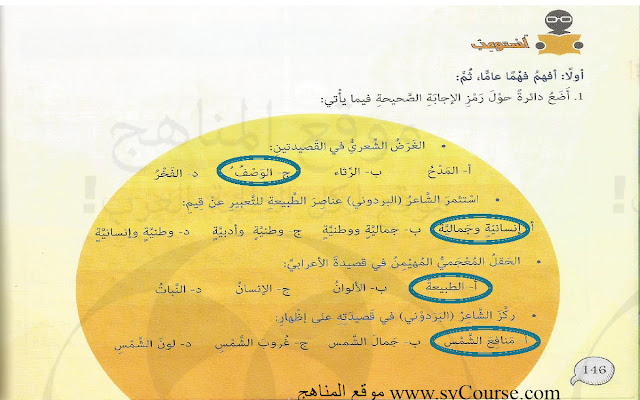 أستوعب
أولًا: أفهمُ فهْمًا عامًّا، ثُمَّ:
1. أَضَعُ دائرةً حوْلَ رَمْزِ الإجابَةِ الصَّحيحةِ فيما يأْتي:
• الغَرَضُ الشّعريُّ في القَصيدتين:
أ- المَدْحُ ب- الرّثاء ج- الوَصْفُ د- الفَخْرُ
• اسْتثمرَ الشّاعرُ (البردوني) عناصِرَ الطَّبيعةِ للتَّعبيرِ عنْ قِيمٍ:
أ إنسانيّة وجَماليّة ب- جماليّةٍ ووطنيّةٍ ج- وطنيّةٍ وأدبيَّةٍ د- وطنيّةٍ وإنسانيَّةٍ
• الحَقلُ المُعْجَميُّ المُهَيْمِنُ في قصيدةِ الأعرابيّ:
أ- الطبيعة ب- الألوانُ ج- الإنسانُ د- النّباتُ
• ركَّزَ الشّاعرُ (البَرَدوْني) في قَصيدَتِه على إظْهارِ:
أ مَنافِعِ الشَّمْسِ ب- جَمالَ الشَّمسِ ج- غُروبَ الشَّمْسِ د- لونَ الشَّمْسِ
146
موقع المناهج www.svCourse.com
موقع المناهج